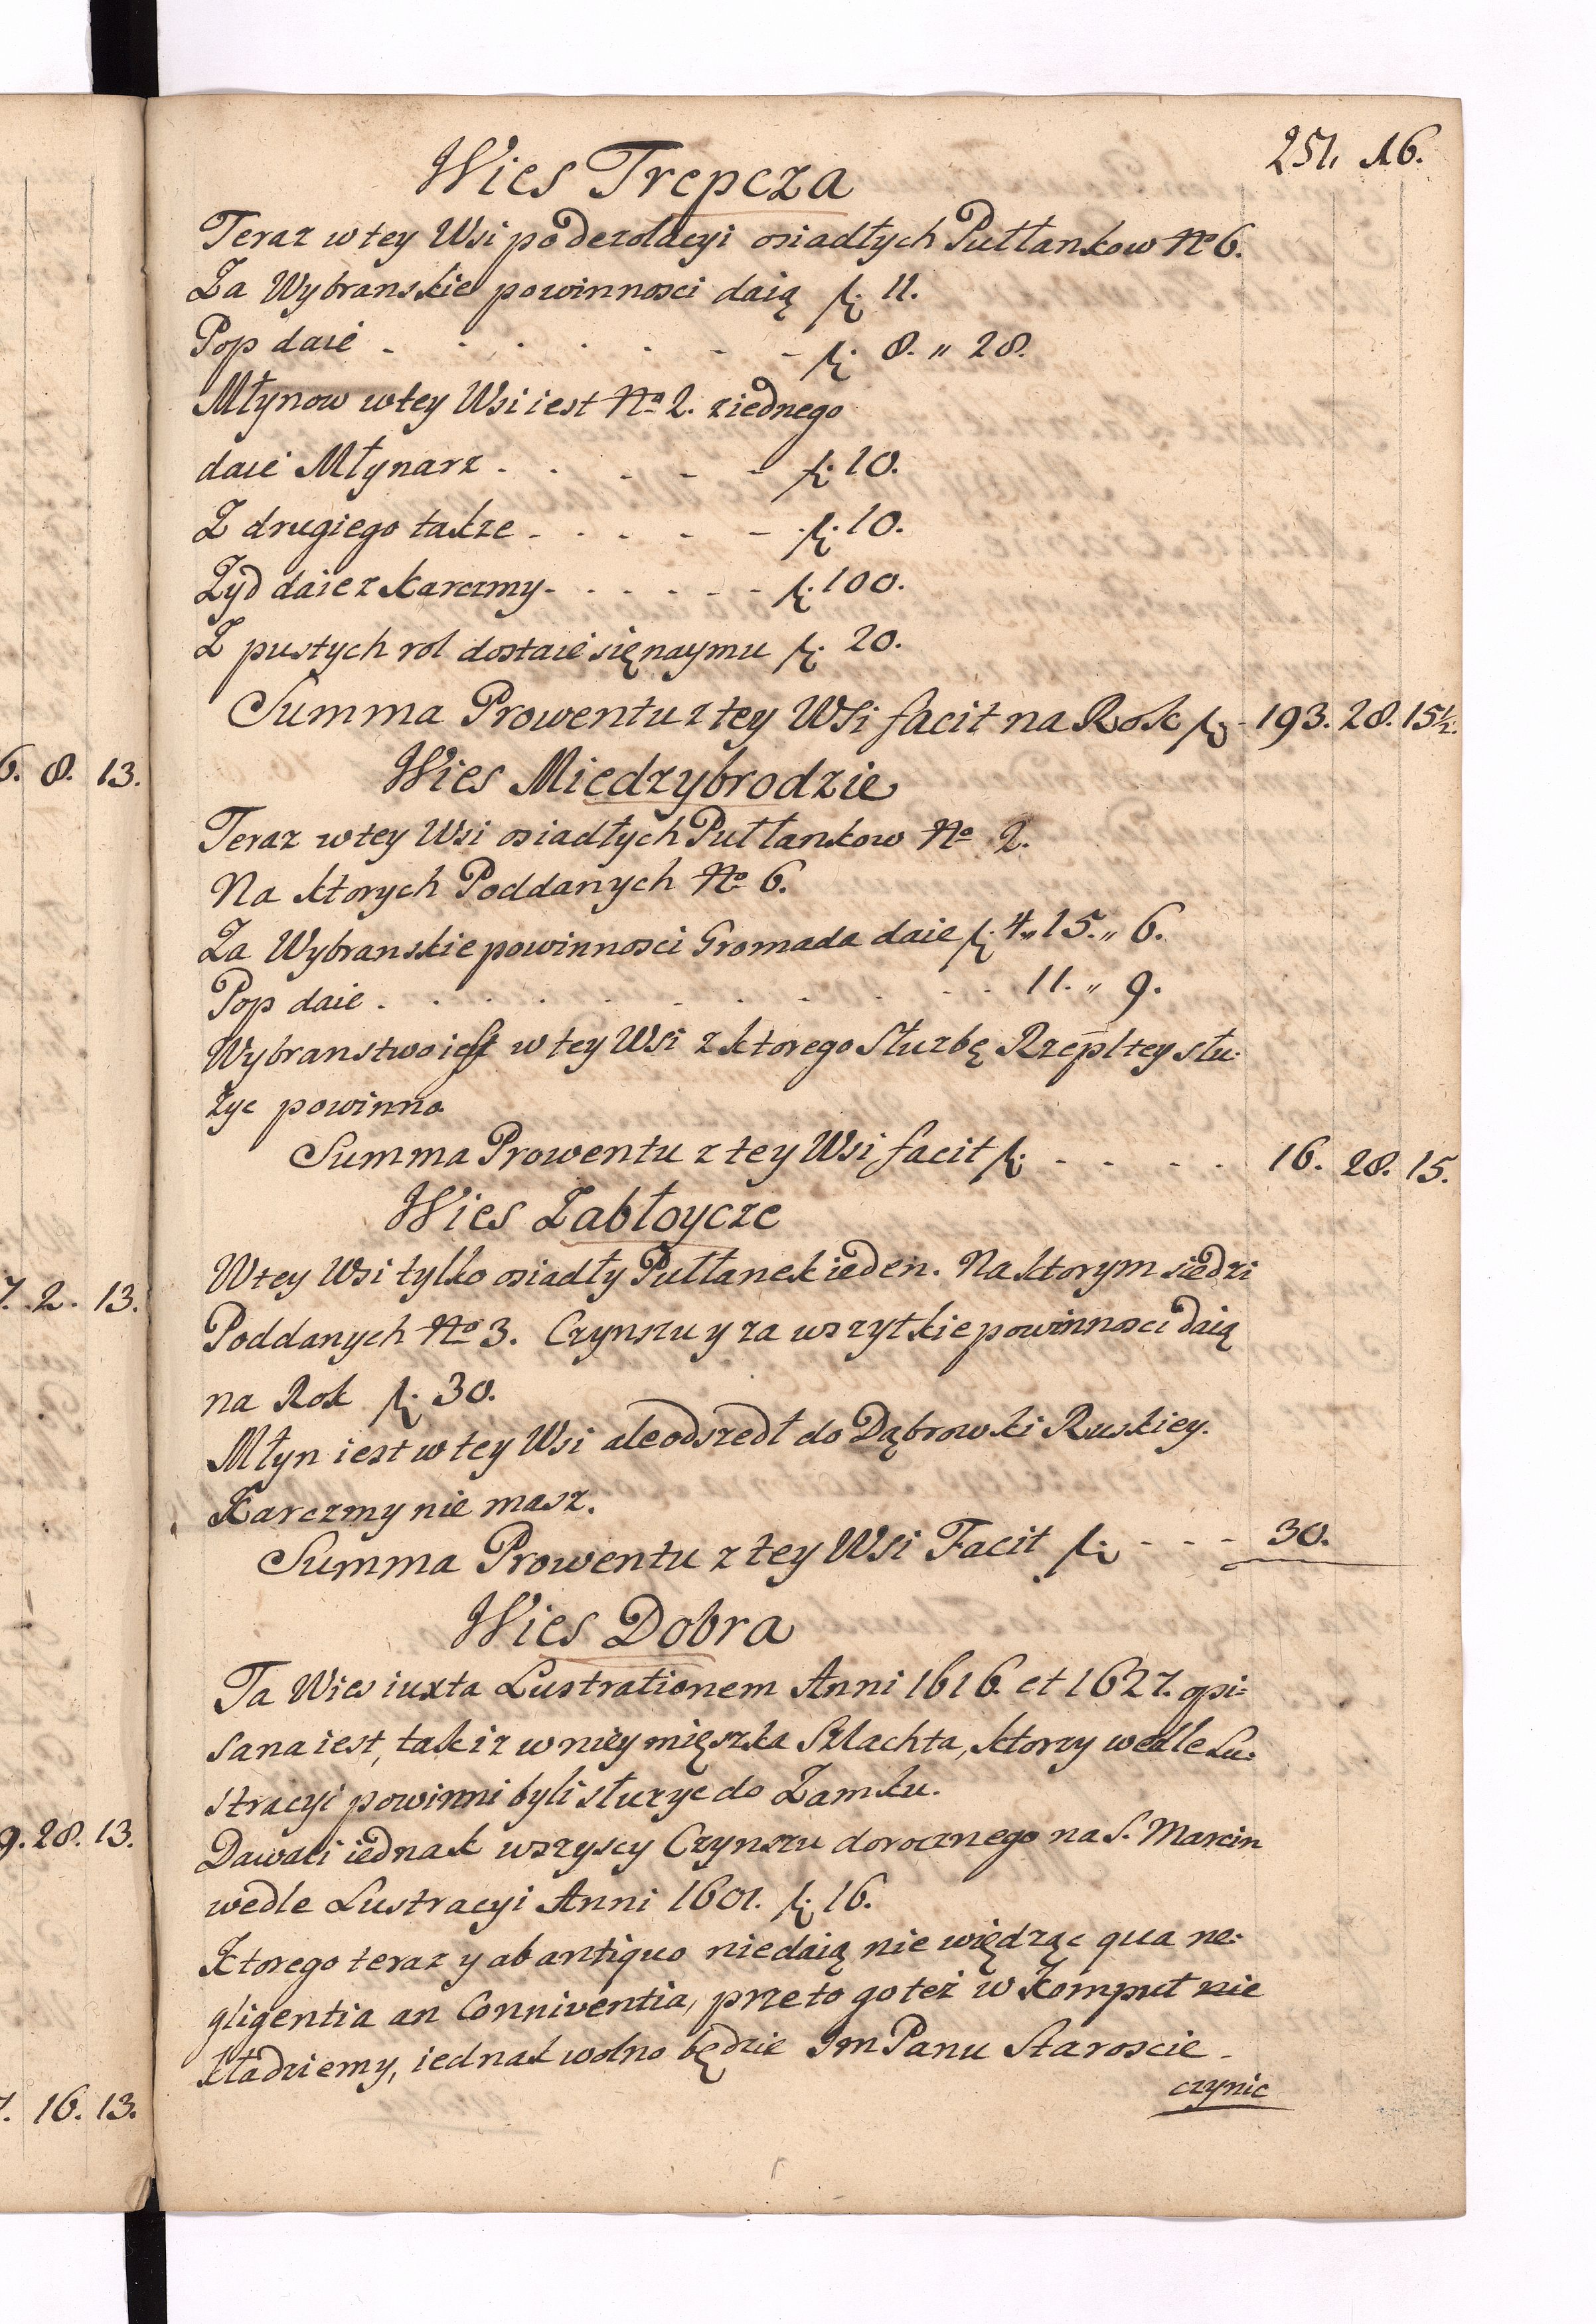 251. 16.
Wies Trepcza
Teraz w tey Wsi po dezolacyi osiadłych Putłankow No 6.
Za Wybranskie powinnosci daią fl. 11.
Pop daie - - - - - - - fl. 8. „ 28.
Młynow w tey Wsi iest No 2. z iednego
daie Młynarz - - - - - fl. 10.
Z drugiego takze - - - - - fl. 10.
Zyd daie z Karczmy - - - - - - fl. 100.
Z pustych rol dostaie się naymu fl. 20.
Summa Prowentu z tey Wsi facit na Rok fl - 193. 28. 15½.
6. 8. 13.
Wies Miedzybrodzie
Teraz w tey Wsi osiadłych Putłankow No 2.
Na ktorych Poddanych No 6.
Za Wybranskie powinnosci Gromada daie fl. 4„ 15. „ 6.
Pop daie - - - - - - - - - - - 11. „ 9.
Wybranstwo iest w tey Wsi z ktorego Słuzbę Rzepltey słu-
zyc powinno
Summa Prowentu z tey Wsi facit fl. - - - - - 16. 28. 15.
Wies Zabłoycze
W tey Wsi tylko osiadły Putłanek ieden. Na ktorym siedzi
7. 2. 13.
Poddanych No 3. Czynszu y za wszytkie powinnosci daią
na Rok fl. 30.
Młyn iest w tey Wsi ale odszedł do Dąbrowki Ruskiey.
Karczmy nie masz.
Summa Prowentu z tey Wsi Facit fl. - - - 30.
Wies Dobra
Ta Wies iuxta Lustrationem Anni 1616. et 1627. opi=
sana iest, tak iz w niey mięszka Szlachta, ktorzy wedle Lu-
stracyi powinni byli słuzyc do Zamku.
9. 28. 13.
Dawali iednak wszyscy Czynszu dorocznego na S. Marcin
wedle Lustracyi Anni 1601. fl. 16.
Ktorego teraz y ab antiquo niedaią nie więdząc qua ne-
gligentia an Conniventia, przeto go tez w Komput nie
kładziemy, iednak wolno będzie Im Panu Staroscie -
czynic
7. 16. 13.